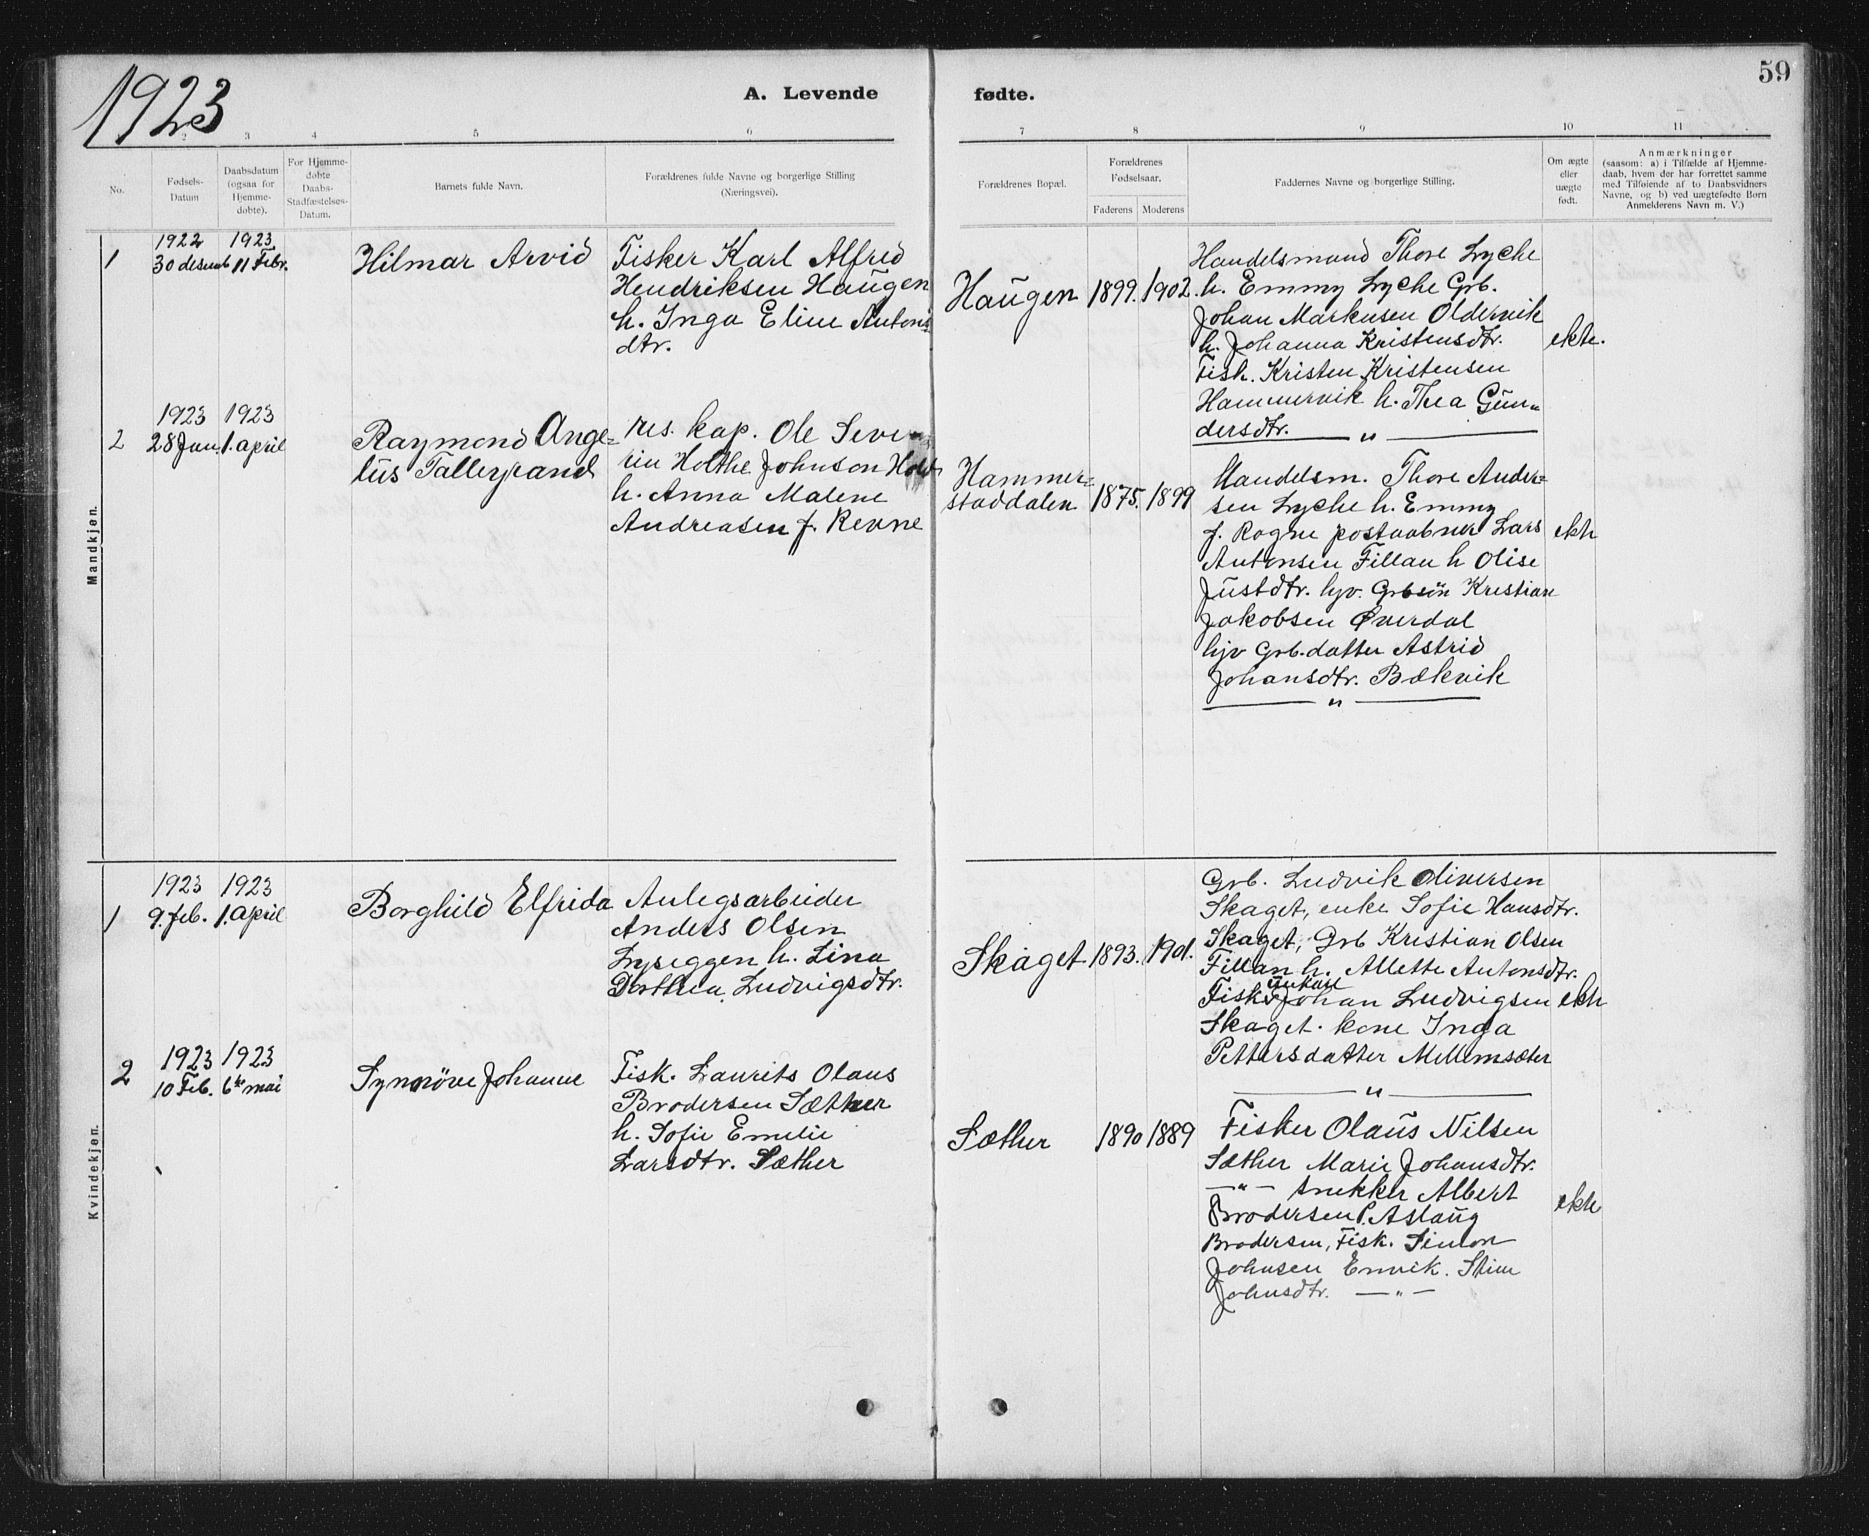 1923
A. Levende fødte.
59
2 3 4 5 6 7 8 9 10 11
No.
Fødsels-
Datum
Daabsdatum
(ogsaa for
Hjemme-
døbte).
For Hjemme-
døbte
Daabs-
Stadfæstelses-
Datum.
Barnets fulde Navn.
Forældrenes fulde Navne og borgerlige Stilling
(Næringsvei).
Forældrenes Bopæl.
Forældrenes
Fødselsaar.
Faderens Moderens
Faddernes Navne og borgerlige Stilling.
Om ægte
eller
uægte
født.
Anmærkninger
(saasom: a) i Tilfælde af Hjemme-
daab, hvem der har forrettet samme
med Tilføiende af to Daabsvidners
Navne, og b) ved uægtefødte Børn
Anmelderens Navn m. V.)
Mandkjøn.
1
1922
30 desemb
1923
11 Febr.
Hilmar Arvid
Fisker Karl Alfred
Hendriksen Haugen
h. Inga Eline Antons
dtr.
Haugen
1899.
1902.
Handelsmand Thore Lyche
h. Emmy Lyche Grb.
Johan Markusen Oldervik
h. Johanna Kristensdtr.
Fisk. Kristen Kristensen
Hammervik h. Thea Gun-
dersdtr. — " —
ekte.
2
1923
28 Jan.
1923
1. april
Raymond Ange-
lus Talleyrand
res. kap. Ole Seve-
rin Holthe Johnson
h. Anna Malene
Andreasen f. Revne
Hammer-
staddalen
1875.
1899
Handelsm. Thore Ander-
sen Lyche h. Emmy
f. Rogne postaabner Lars
Antonsen Fillan h Olise
Justdtr. hjv. Grbsøn Kristian
Jakobsen Øverdal
hjv Grb.datter Astrid
Johansdtr. Bækvik
— " —
ekte
Kvindekjøn.
1
1923
9. feb.
1923
1. april
Borghild Elfrida
Anlegsarbeider
Anders Olsen
Lyseggen h. Lina
Dorthea Ludvigsdtr.
Skaget
1893.
1901.
Grb. Ludvik Oliversen
Skaget, enke Sofie Hansdtr.
Skaget, Grb Kristian Olsen
Fillan h. Allette Antonsdtr.
Fisk. Johan Ludvigsen
Skaget. kone Inga
Pettersdatter Mellemsæter
— " —
ekte
2
1923
10 Feb.
1923
6te mai
Synnöve Johanne
Fisk. Laurits Olaus
Brodersen Sæther
h. Sofie Emelie
Larsdtr. Sæther
Sæther
1890
1889
Fisker Olaus Nilsen
Sæther Marie Johansdtr.
— " — snekker Albert
Brodersen P. Aslaug
Brodersen, Fisk. Simon
Johnsen Envik. Stine
Johnsdtr. — " —
ekte